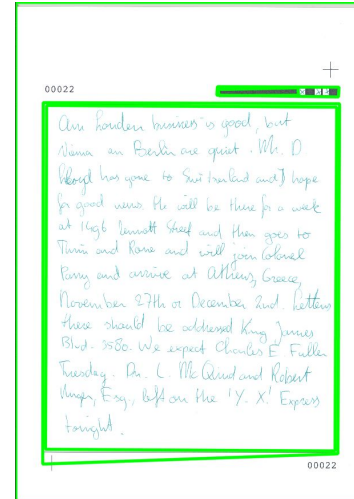 00022
Our London business is good, but
Vienna an Berlin are quiet. Mr. D
Lloyd has gone to Switzerland and I hope
for good news. He will be there for a week
at 1496 Zermott Street and then goes to
Turin and Rome and will join Colonel
Parry and arrive at Athens, Greece,
November 27th or December 2nd. Letters
there should be addressed King James
Blvd. 3580. We expect Charles E. Fuller
Tuesday. Dr. L. McQuid and Robert
Unger, Esq., left on the 'Y. X.' Express
tonight.
00022